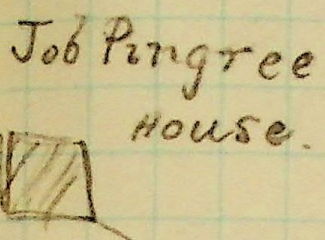 Job Pingree
House.